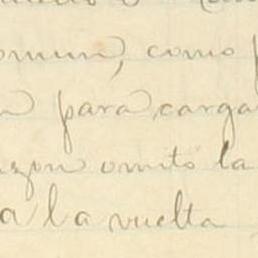 omun, como
para carga
azon omito la
a la vuelta